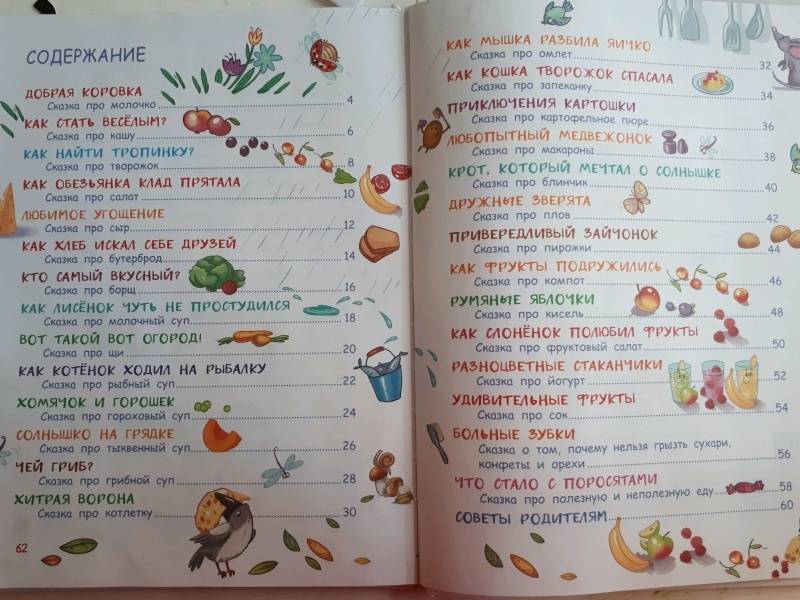 СОДЕРЖАНИЕ
ДОБРАЯ КОРОВКА
Сказка про молочко 4
КАК СТАТЬ ВЕСЁЛЫМ?
Сказка про кашу 6
КАК НАЙТИ ТРОПИНКУ?
Сказка про творожок 8
КАК ОБЕЗЬЯНКА КЛАД ПРЯТАЛА
Сказка про салат 10
ЛЮБИМОЕ УГОЩЕНИЕ
Сказка про сыр 12
КАК ХЛЕБ ИСКАЛ СЕБЕ ДРУЗЕЙ
Сказка про бутерброд 14
КТО САМЫЙ ВКУСНЫЙ?
Сказка про борщ 16
КАК ЛИСЁНОК ЧУТЬ НЕ ПРОСТУДИЛСЯ
Сказка про молочный суп 18
ВОТ ТАКОЙ ВОТ ОГОРОД!
Сказка про щи 20
КАК КОТЁНОК ХОДИЛ НА РЫБАЛКУ
Сказка про рыбный суп 22
ХОМЯЧОК И ГОРОШЕК
Сказка про гороховый суп 24
СОЛНЫШКО НА ГРЯДКЕ
Сказка про тыквенный суп 26
ЧЕЙ ГРИБ?
Сказка про грибной суп 28
ХИТРАЯ ВОРОНА
Сказка про котлетку 30
62
КАК МЫШКА РАЗБИЛА ЯИЧКО
Сказка про омлет 32
КАК КОШКА ТВОРОЖОК СПАСАЛА
Сказка про запеканку 34
ПРИКЛЮЧЕНИЯ КАРТОШКИ
Сказка про картофельное пюре 36
ЛЮБОПЫТНЫЙ МЕДВЕЖОНОК
Сказка про макароны 38
КРОТ, КОТОРЫЙ МЕЧТАЛ О СОЛНЫШКЕ
Сказка про блинчик 40
ДРУЖНЫЕ ЗВЕРЯТА
Сказка про плов 42
ПРИВЕРЕДЛИВЫЙ ЗАЙЧОНОК
Сказка про пирожки 44
КАК ФРУКТЫ ПОДРУЖИЛИСЬ
Сказка про компот 46
РУМЯНЫЕ ЯБЛОЧКИ
Сказка про кисель 48
КАК СЛОНЁНОК ПОЛЮБИЛ ФРУКТЫ
Сказка про фруктовый салат 50
РАЗНОЦВЕТНЫЕ СТАКАНЧИКИ
Сказка про йогурт 52
УДИВИТЕЛЬНЫЕ ФРУКТЫ
Сказка про сок 54
БОЛЬНЫЕ ЗУБКИ
Сказка о том, почему нельзя грызть сухари,
конфеты и орехи 56
ЧТО СТАЛО С ПОРОСЯТАМИ
Сказка про полезную и неполезную еду 58
СОВЕТЫ РОДИТЕЛЯМ 60